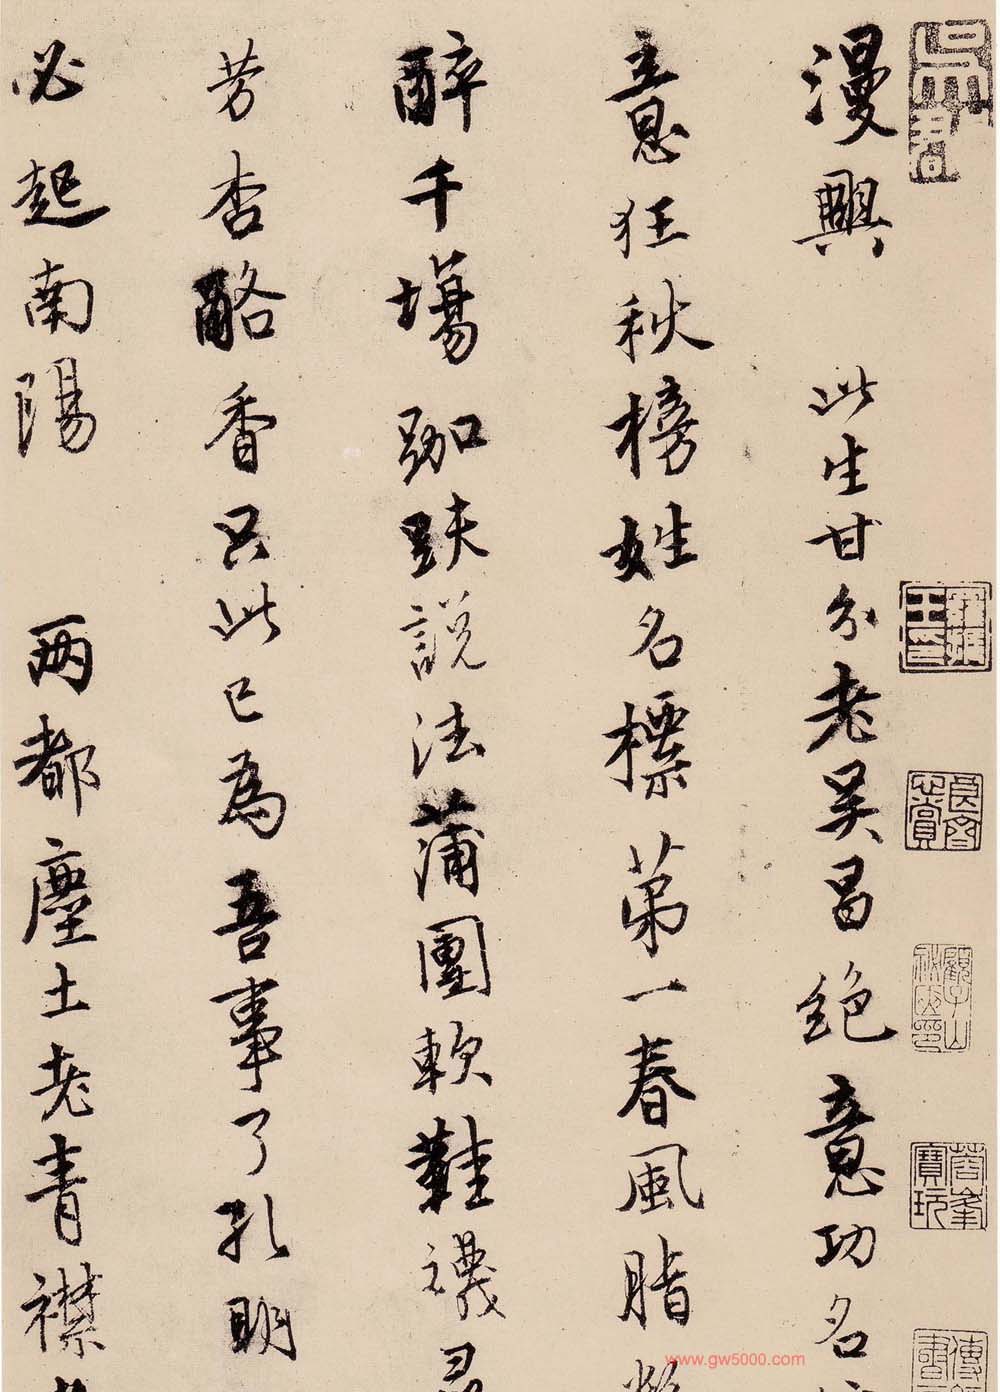 漫興 此生甘分老吳昌絕意功名
意狂秋榜姓名標第一春風脂
醉千場跏趺說法蒲團軟鞋襪尋
芳杏酪香只此已為吾事了孔明
必起南陽 两都塵土老青襟
www.gw5000.com